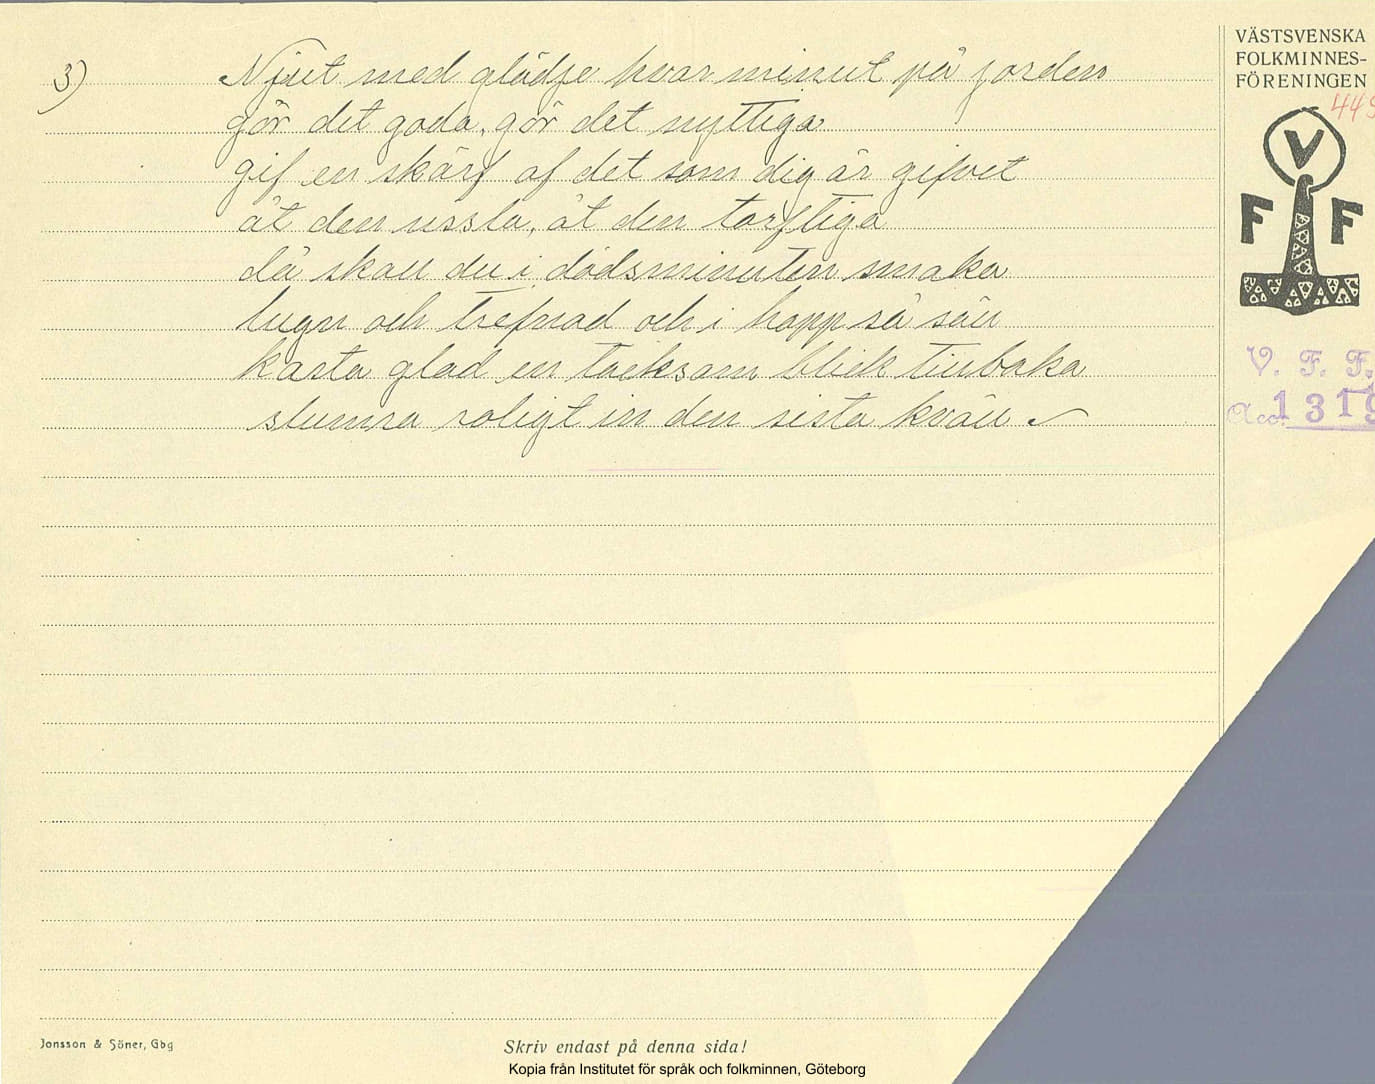 3) Njut med glädje hvar minut på jorden
gör det goda, gör det nyttiga
gif en skärf af det som dig är gifvet
åt den ussla, åt den torftiga
då skall du i dödsminuten smaka
lugn och trefnad och i hopp så säll
kasta glad en tacksam blick tillbaka
slumra roligt in den sista kväll
VÄSTSVENSKA
FOLKMINNES-
FÖRENINGEN
449
V
F F
V. F. F.
Acc. 1319
Jonsson & Söner, Gbg
Skriv endast på denna sida!
Kopia från Institutet för språk och folkminnen, Göteborg